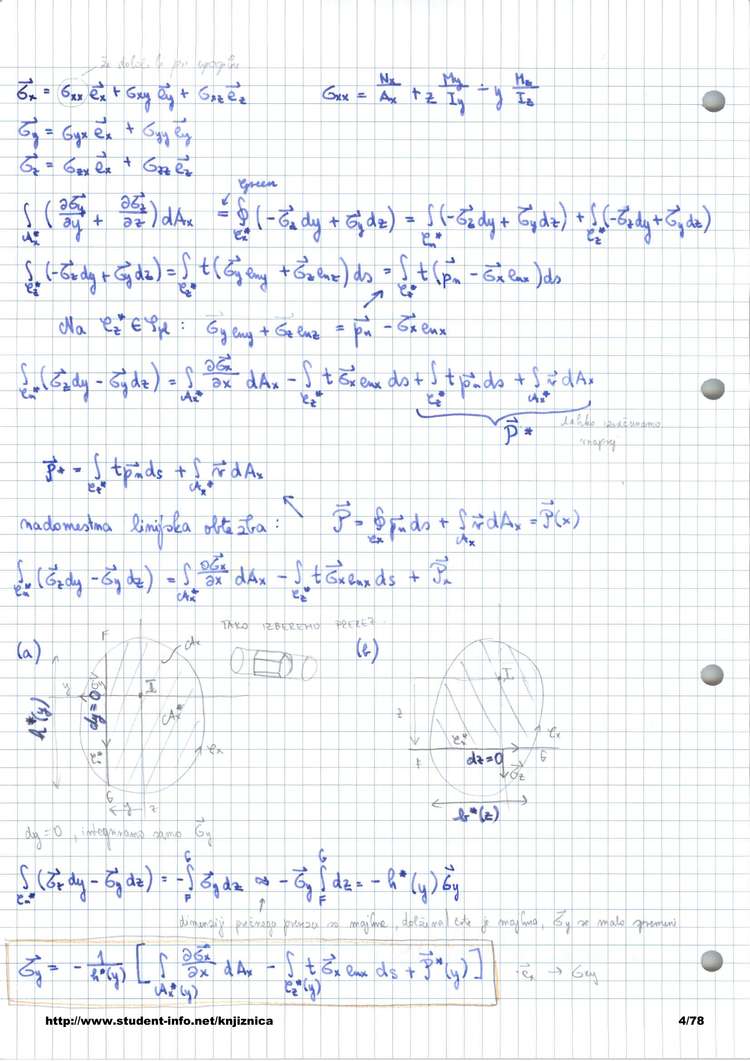 že določili pri upogibu
σ⃗x = σxx e⃗x + σxy e⃗y + σxz e⃗z    σxx = Nx/Ax + z My/Iy - y Mz/Iz
σ⃗y = σyx e⃗x + σyy e⃗y
σ⃗z = σzx e⃗x + σzz e⃗z
Green
∫Ax* (∂σ⃗y/∂y + ∂σ⃗z/∂z) dAx = ∮ℓx* (-σ⃗z dy + σ⃗y dz) = ∫ℓn* (-σ⃗z dy + σ⃗y dz) + ∫ℓz* (-σ⃗z dy + σ⃗y dz)
∫ℓz* (-σ⃗z dy + σ⃗y dz) = ∫ℓz* t (σ⃗y eny + σ⃗z enz) ds = ∫ℓz* t (p⃗n - σ⃗x enx) ds
Na ℓz* ∈ Ypl : σ⃗y eny + σ⃗z enz = p⃗n - σ⃗x enx
∫ℓn* (σ⃗z dy - σ⃗y dz) = ∫Ax* ∂σ⃗x/∂x dAx - ∫ℓz* t σ⃗x enx ds + ∫ℓz* t p⃗n ds + ∫Ax* v⃗ dAx
P⃗* lahko izračunamo
vnaprej
P⃗* = ∫ℓz* t p⃗n ds + ∫Ax* v⃗ dAx
nadomestna linijska obtežba : P⃗ = ∮ℓx p⃗n ds + ∫Ax v⃗ dAx = P⃗(x)
∫ℓn* (σ⃗z dy - σ⃗y dz) = ∫Ax* ∂σ⃗x/∂x dAx - ∫ℓz* t σ⃗x enx ds + P⃗*
TAKO IZBEREMO PREREZ
(a) F Ax (b)
y σ⃗y T T
h*(y) dy=0 Ax* z
ℓn* ℓx ℓn* ℓx
F dz=0 G
σ⃗z
G y z b*(z)
dy = 0, integriramo samo σ⃗y
∫ℓn* (σ⃗z dy - σ⃗y dz) = -∫F G σ⃗y dz ≈ -σ⃗y ∫F G dz = -h*(y) σ⃗y
dimenzij prečnega prereza so majhne, dolžina črte je majhna, σ⃗y se malo spremeni
σ⃗y = - 1/h*(y) [ ∫Ax*(y) ∂σ⃗x/∂x dAx - ∫ℓz*(y) t σ⃗x enx ds + P⃗*(y) ] · e⃗x → σxy
http://www.student-info.net/knjiznica 4/78